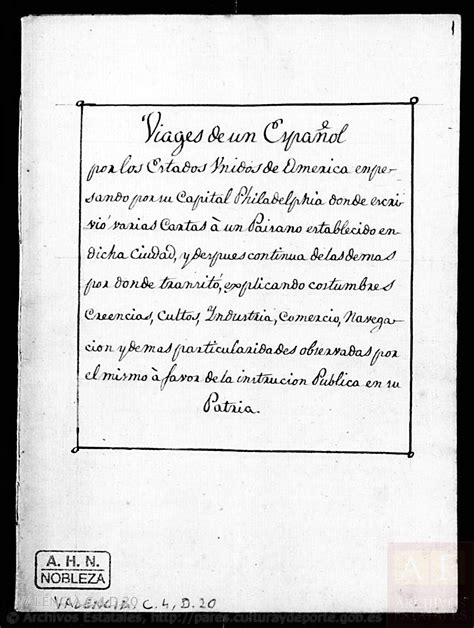 1
Viages de un Español
por los Estados Unidos de America enpe-
sando por su Capital Philadelphia donde escri-
vió varias Cartas à un Paisano establecido en
dicha Ciudad, y despues continua de las demas
por donde transitó, explicando costumbres
Creencias, Cultos, Industria, Comercio, Navega-
cion y demas particularidades observadas por
el mismo à favor de la instrucion Publica en su
Patria.
A. H. N.
NOBLEZA
VALENCIA, C. 4, D. 20
© Archivos Estatales, http://pares.culturaydeporte.gob.es